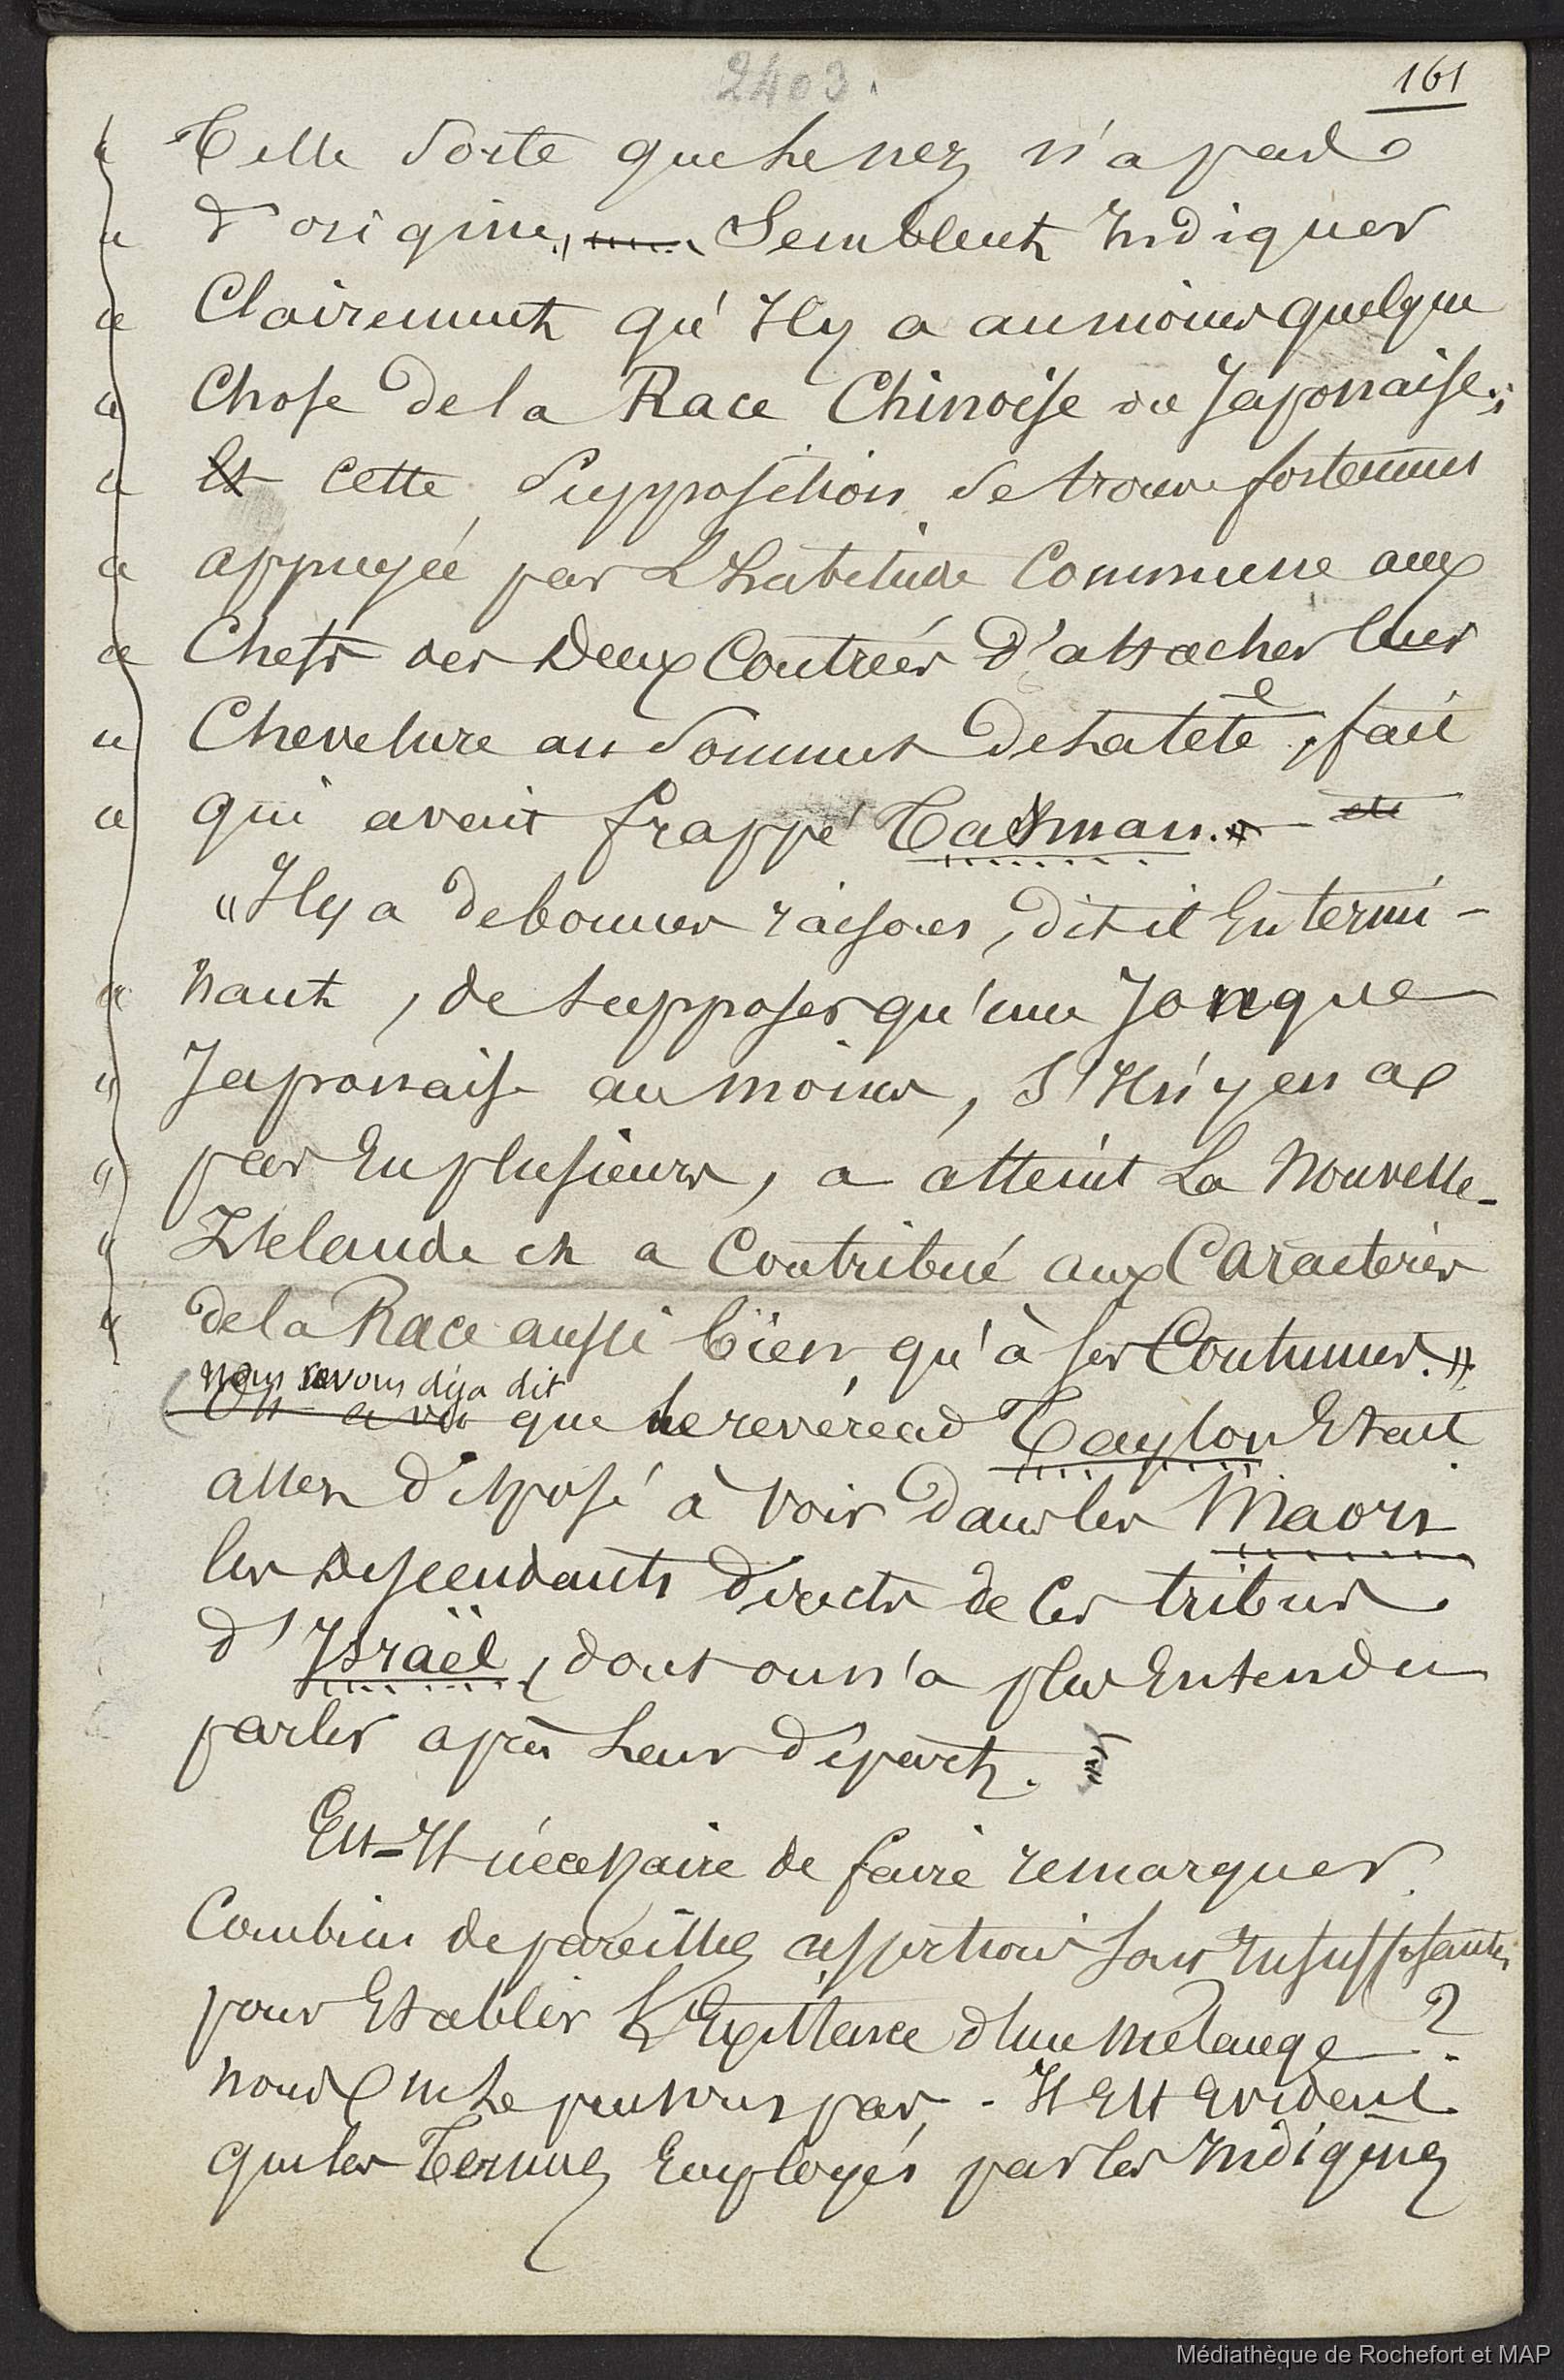 2403.
161
« Telle sorte que le nez n'a pas
« d'origine, semblent indiquer
« Clairement qu'Il y a au moins quelque
« Chose de la Race Chinoise ou Japonaise;
« Et cette supposition se trouve fortement
« appuyée par L'habitude Commune aux
« Chefs des Deux Contrées d'attacher leur
« Chevelure au sommet de la tête, fait
« qui avait frappé Tasman. »
« Il y a de bonnes raisons, dit-il En termi-
« nant, de supposer qu'une Jonque
« Japonaise au moins, S'Il n'y en a
« pas Eu plusieurs, a atteint La Nouvelle-
« Zélande et a Contribué aux Caractères
« de la Race aussi bien qu'à ses Coutumes. »
nous avons déja dit
(On a vu que le révérend Taylor Etait
assez disposé à voir dans les Maoris
les descendants directs de ces tribus
d'Israël, dont on n'a plus Entendu
parler après Leur départ.)
Est-Il nécessaire de faire remarquer
Combien de pareilles assertions sont Insuffisantes
pour Etablir L'Existence d'un mélange ?
nous ne le pensons pas. - Il Est Evident
que les Termes Employés par les Indigènes
Médiathèque de Rochefort et MAP